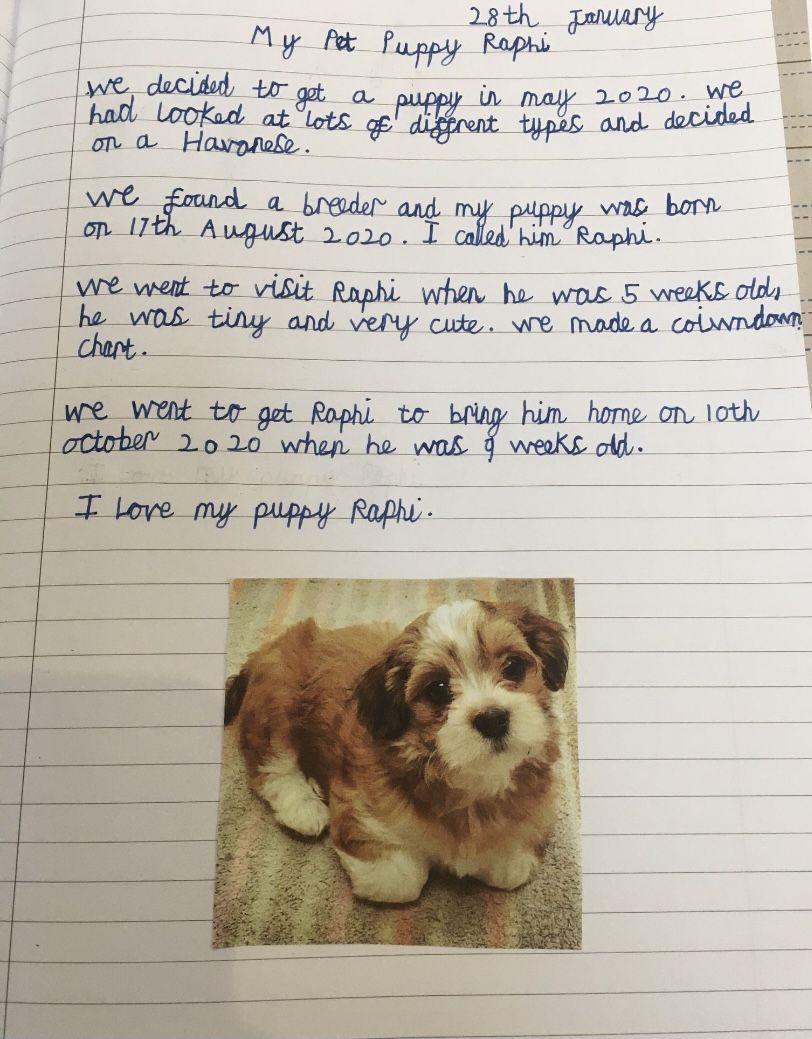 28th January
My Pet Puppy Raphi
we decided to get a puppy in may 2020. we
had looked at lots of diffrent types and decided
on a Havanese.
we found a breeder and my puppy was born
on 17th August 2020. I called him Raphi.
we went to visit Raphi when he was 5 weeks old,
he was tiny and very cute. we made a coiwndown
chart.
we went to get Raphi to bring him home on 10th
october 2020 when he was 9 weeks old.
I Love my puppy Raphi.